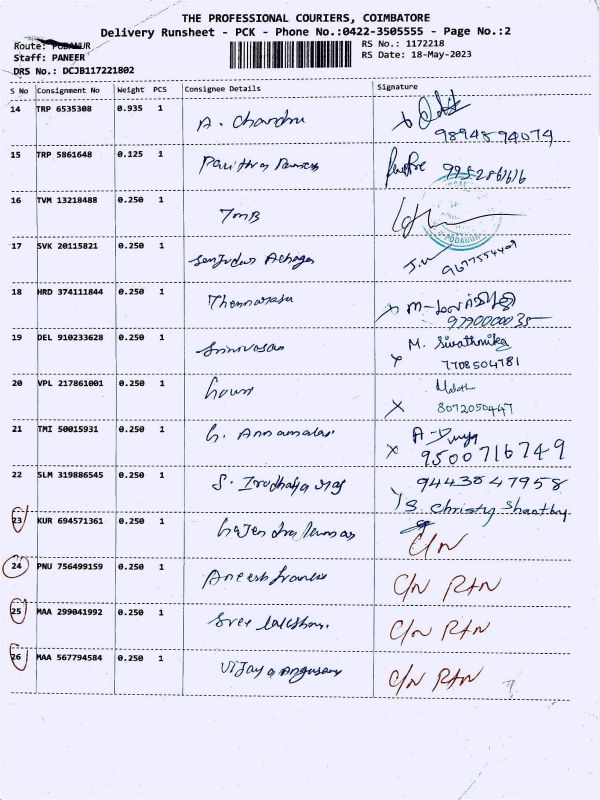 THE PROFESSIONAL COURIERS, COIMBATORE
Delivery Runsheet - PCK - Phone No.:0422-3505555 - Page No.:2
Route: PODANUR
RS No.: 1172218
Staff: PANEER
RS Date: 18-May-2023
DRS No.: DCJB117221802
S No Consignment No Weight PCS Consignee Details Signature
14 TRP 6535308 0.935 1 A. Chandru
9894594074
15 TRP 5861648 0.125 1
16 TVM 13218488 0.250 1 TMB
PODANUR
17 SVK 20115821 0.250 1
9677554409
18 HRD 374111844 0.250 1 Thennarasu
9790000035
19 DEL 910233628 0.250 1 Srinivasan M. Sivathmika
x 7708504781
20 VPL 217861001 0.250 1
x 8072050447
21 TMI 50015931 0.250 1 G. Annamalai A-Divya
x 9500716749
22 SLM 319886545 0.250 1 S. Irudhaya raj 9443547958
S. Christy
23 KUR 694571361 0.250 1 C/N
24 PNU 756499159 0.250 1 C/N RAN
25 MAA 299041992 0.250 1 Sree lakshmi C/N RAN
26 MAA 567794584 0.250 1 Vijaya C/N RAN